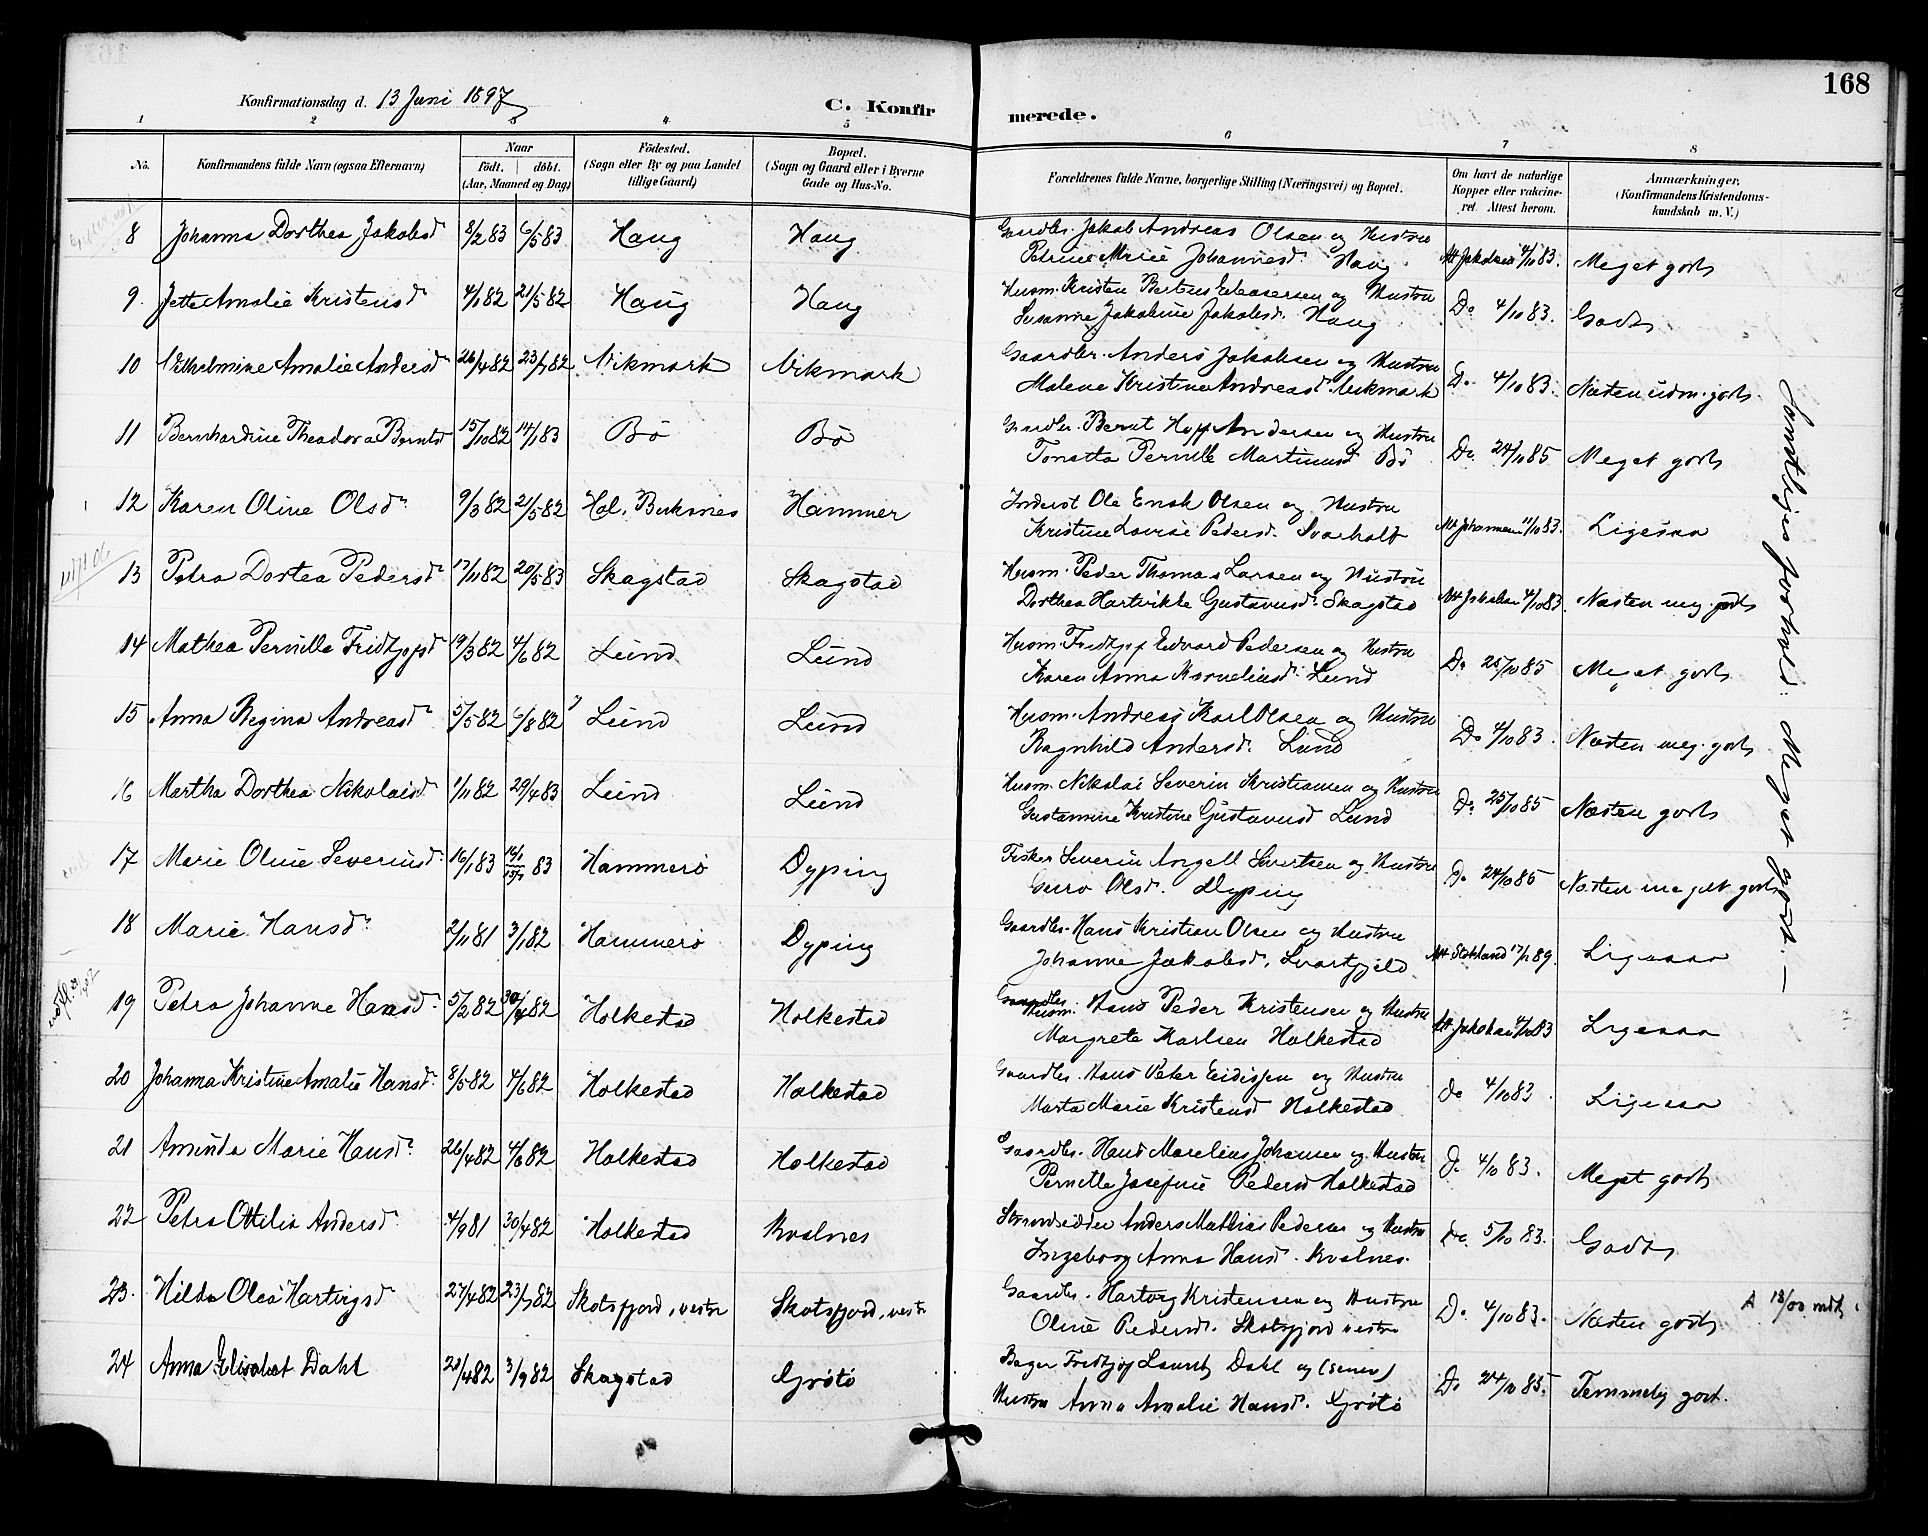 168
Konfirmationsdag d. 13 Juni 1897
C. Konfir
merede.
1 2 3 4 5 6 7 8
No.
Konfirmandens fulde Navn (ogsaa Efternavn)
Naar
födt. döbt.
(Aar, Maaned og Dag)
Födested.
(Sogn eller By og paa Landet
tillige Gaard)
Bopæl.
(Sogn og Gaard eller i Byerne
Gade og Hus-No.
Forældrenes fulde Navne, borgerlige Stilling (Næringsvei) og Bopæl.
Om havt de naturlige
Kopper eller vakcine-
ret. Attest herom.
Anmærkninger,
(Konfirmandens Kristendoms-
kundskab m. V.)
8 Johanna Dorthea Jakobsd 8/2 83 6/5 83 Haug Haug Gaardbr. Jakob Andreas Olsen og Hustru
Petrine Marie Johannesd. Haug Att Jakobsen 4/10 83. Meget godt
9. Jette Amalie Kristensd 4/1 82 21/5 82 Haug Haug Husm. Kristen Berteus Eleasersen og Hustru
Susanne Jakobine Jakobsd. Haug Do 4/10 83. Godt
10 Vilhelmine Amalie Andersd 26/4 82 23/7 82 Vikmark Vikmark Gaardbr. Anders Jakobsen og Hustru
Malene Kristine Andreasd. Vikmark Do 4/10 83. Næsten udm. godt.
11 Bernhardine Theodora Berntsd 15/10 82 14/1 83 Bö Bö Gaardbr. Bernt Hoff Andersen og Hustru
Tonetta Pernille Martinusd Bö Do. 24/10 85 Meget godt
12 Karen Oline Olsd 9/3 82 21/5 82 Hol, Buksnes Hammer Inderst Ole Enok Olsen og Hustru
Kristine Lovise Pedersd. Svarholt Att Johannesen 11/10 83. Ligesaa
13 Petra Dortea Pedersd 17/11 82 20/5 83 Skagstad Skagstad Husm. Peder Thomas Larsen og Hustru
Dorthea Hartvikke Gustavusd. Skagstad Att Jakobsen 4/10 83 Næsten meg. godt
14 Mathea Pernille Fridtjofsd 19/3 82 4/6 82 Lund Lund Husm. Fridtjof Edvard Pedersen og Hustru
Karen Anna Korneliusd. Lund Do 25/10 85 Meget godt
15 Anna Regina Andreasd 5/5 82 6/8 82 Lund Lund Husm. Andreas Karl Olsen og Hustru
Ragnhild Andersd. Lund Do 4/10 83. Næsten meg. godt
16 Martha Dorthea Nikolaisd 1/11 82 29/4 83 Lund Lund Husm. Nikolai Severin Kristiansen og Hustru
Gustamine Kristine Gustavusd Lund Do 25/10 85 Næsten godt
17 Marie Oline Severinsd. 16/1 83 83 Hammerö Dyping Fisker Severin Angell Sivertsen og Hustru
Guro Olsd. Dyping Do 24/10 85 Næsten meget godt
18 Marie Hansd. 2/11 81 3/1 82 Hammerö Dyping Gaardbr. Hans Kristian Olsen og Hustru
Johanne Jakobsd. Svartfjeld Att Stokland 17/7 89. Ligesaa
19 Petra Johanne Hansd. 5/2 82 30/4 82 Holkestad Holkestad Gaardbr. Husm. Hans Peder Kristensen og Hustru
Margrete Karlsen Holkestad Att Jakobsen 4/10 83 Ligesaa
20 Johanna Kristine Amalie Hansd. 8/5 82 4/6 82 Holkestad Holkestad Gaardbr. Hans Peter Eidissen og Hustru
Marta Marie Kristensd Holkestad do 4/10 83. Ligesaa
21 Aminda Marie Hansd. 26/4 82 4/6 82 Holkestad Holkestad Gaardbr. Hans Marelius Johansen og Hustru
Pernille Josefine Pedersd Holkestad Do 4/10 83. Meget godt
22 Petra Ottilia Andersd 4/9 81 30/4 82 Holkestad Kvalnes Strandsidder Anders Mathias Pedersen og Hustru
Ingeborg Anna Hansd. Kvalnes. Do. 5/10 83. Godt
23. Hilda Olea Hartvigsd 27/4 82 23/7 82 Skotsfjord, vestre Skotsfjord, vestr Gaardbr. Hartvig Kristensen og Hustru
Oline Pedersd. Skotsfjord vestre Do 4/10 83. Næsten godt
24 Anna Elisabet Dahl 20/4 82 3/9 82 Skagstad Grötö Bager Fredtjof Lauritz Dahl og (senere)
Hustru Anna Amalie Hansd. Grötö Do 24/10 85. Temmelig godt.
Samtliges forhold: Meget godt. —